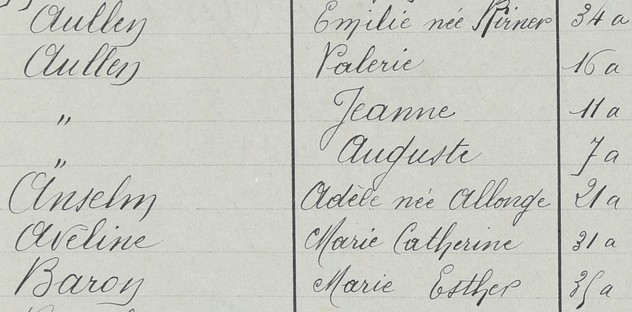 Aullen Emilie née Kirner 34 a
Aullen Valerie 16 a
" Jeanne 11 a
" Auguste 7 a
Anselm Adèle née Allonge 21 a
Aveline Marie Catherine 31 a
Baron Marie Esther 35 a